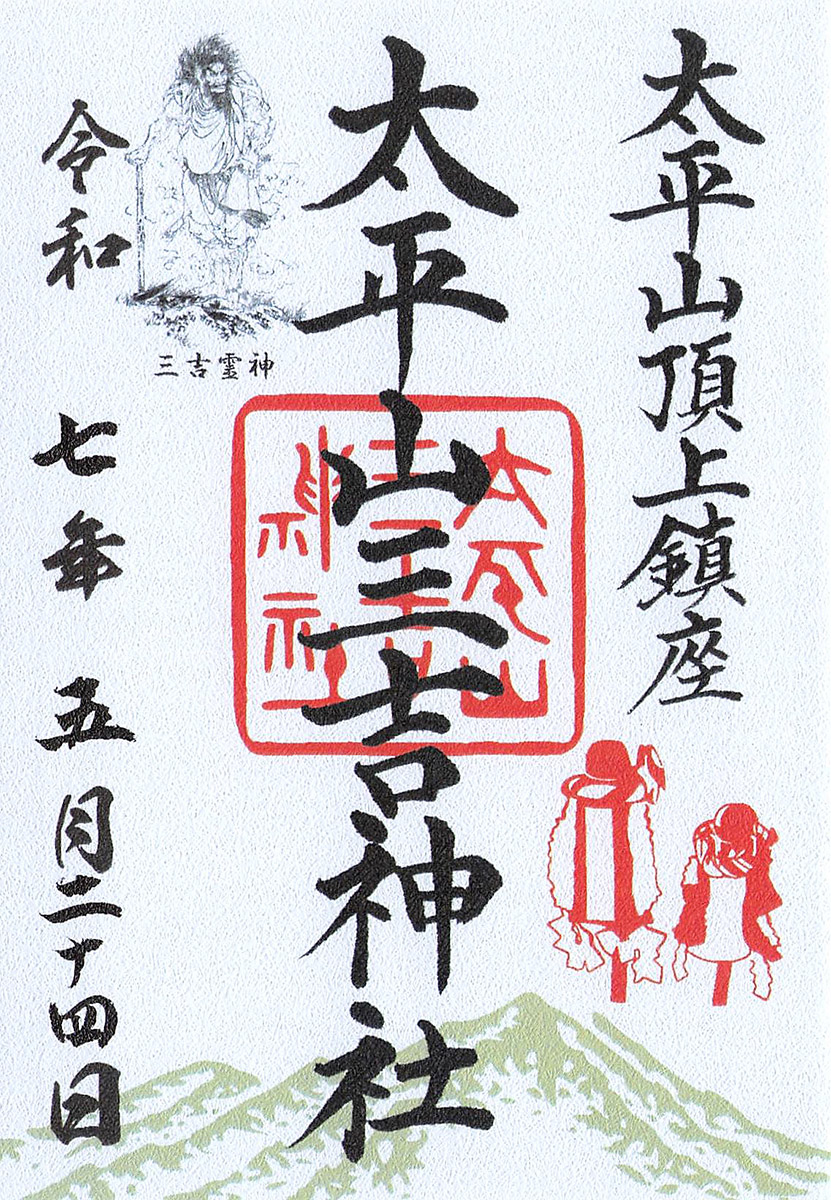 太平山頂上鎮座
太平山三吉神社
太平山
三吉
神社
三吉霊神
令和七年五月二十四日